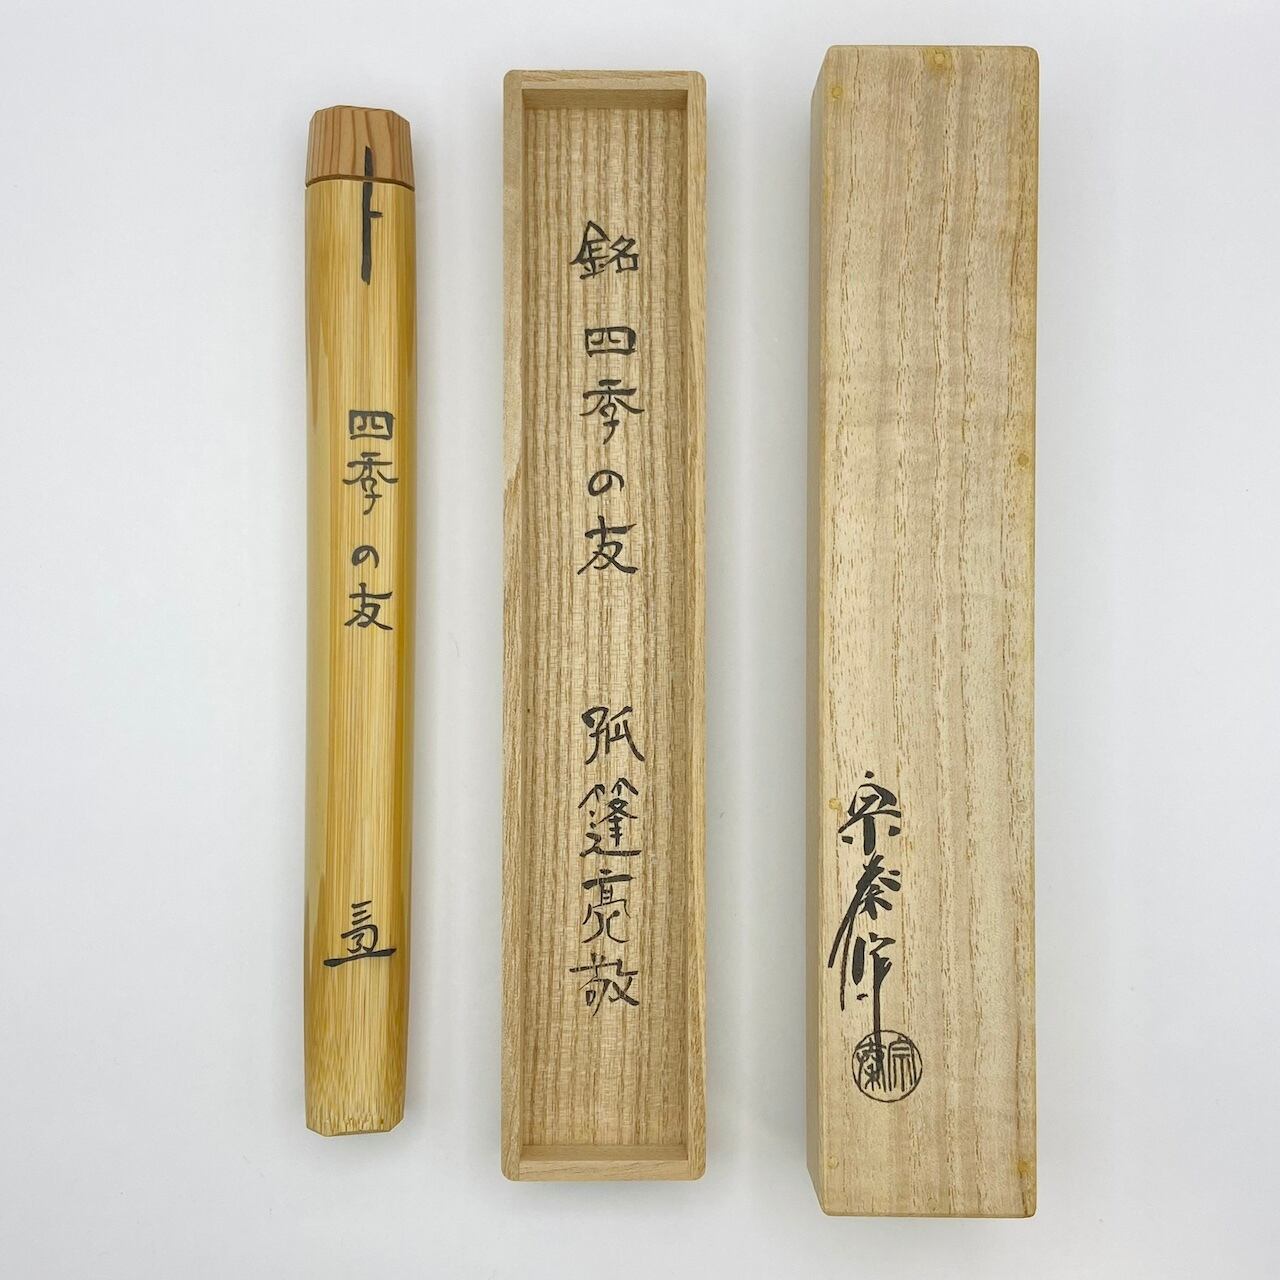 四季の友
銘 四季の友 孤篷亮敬
宗泰作